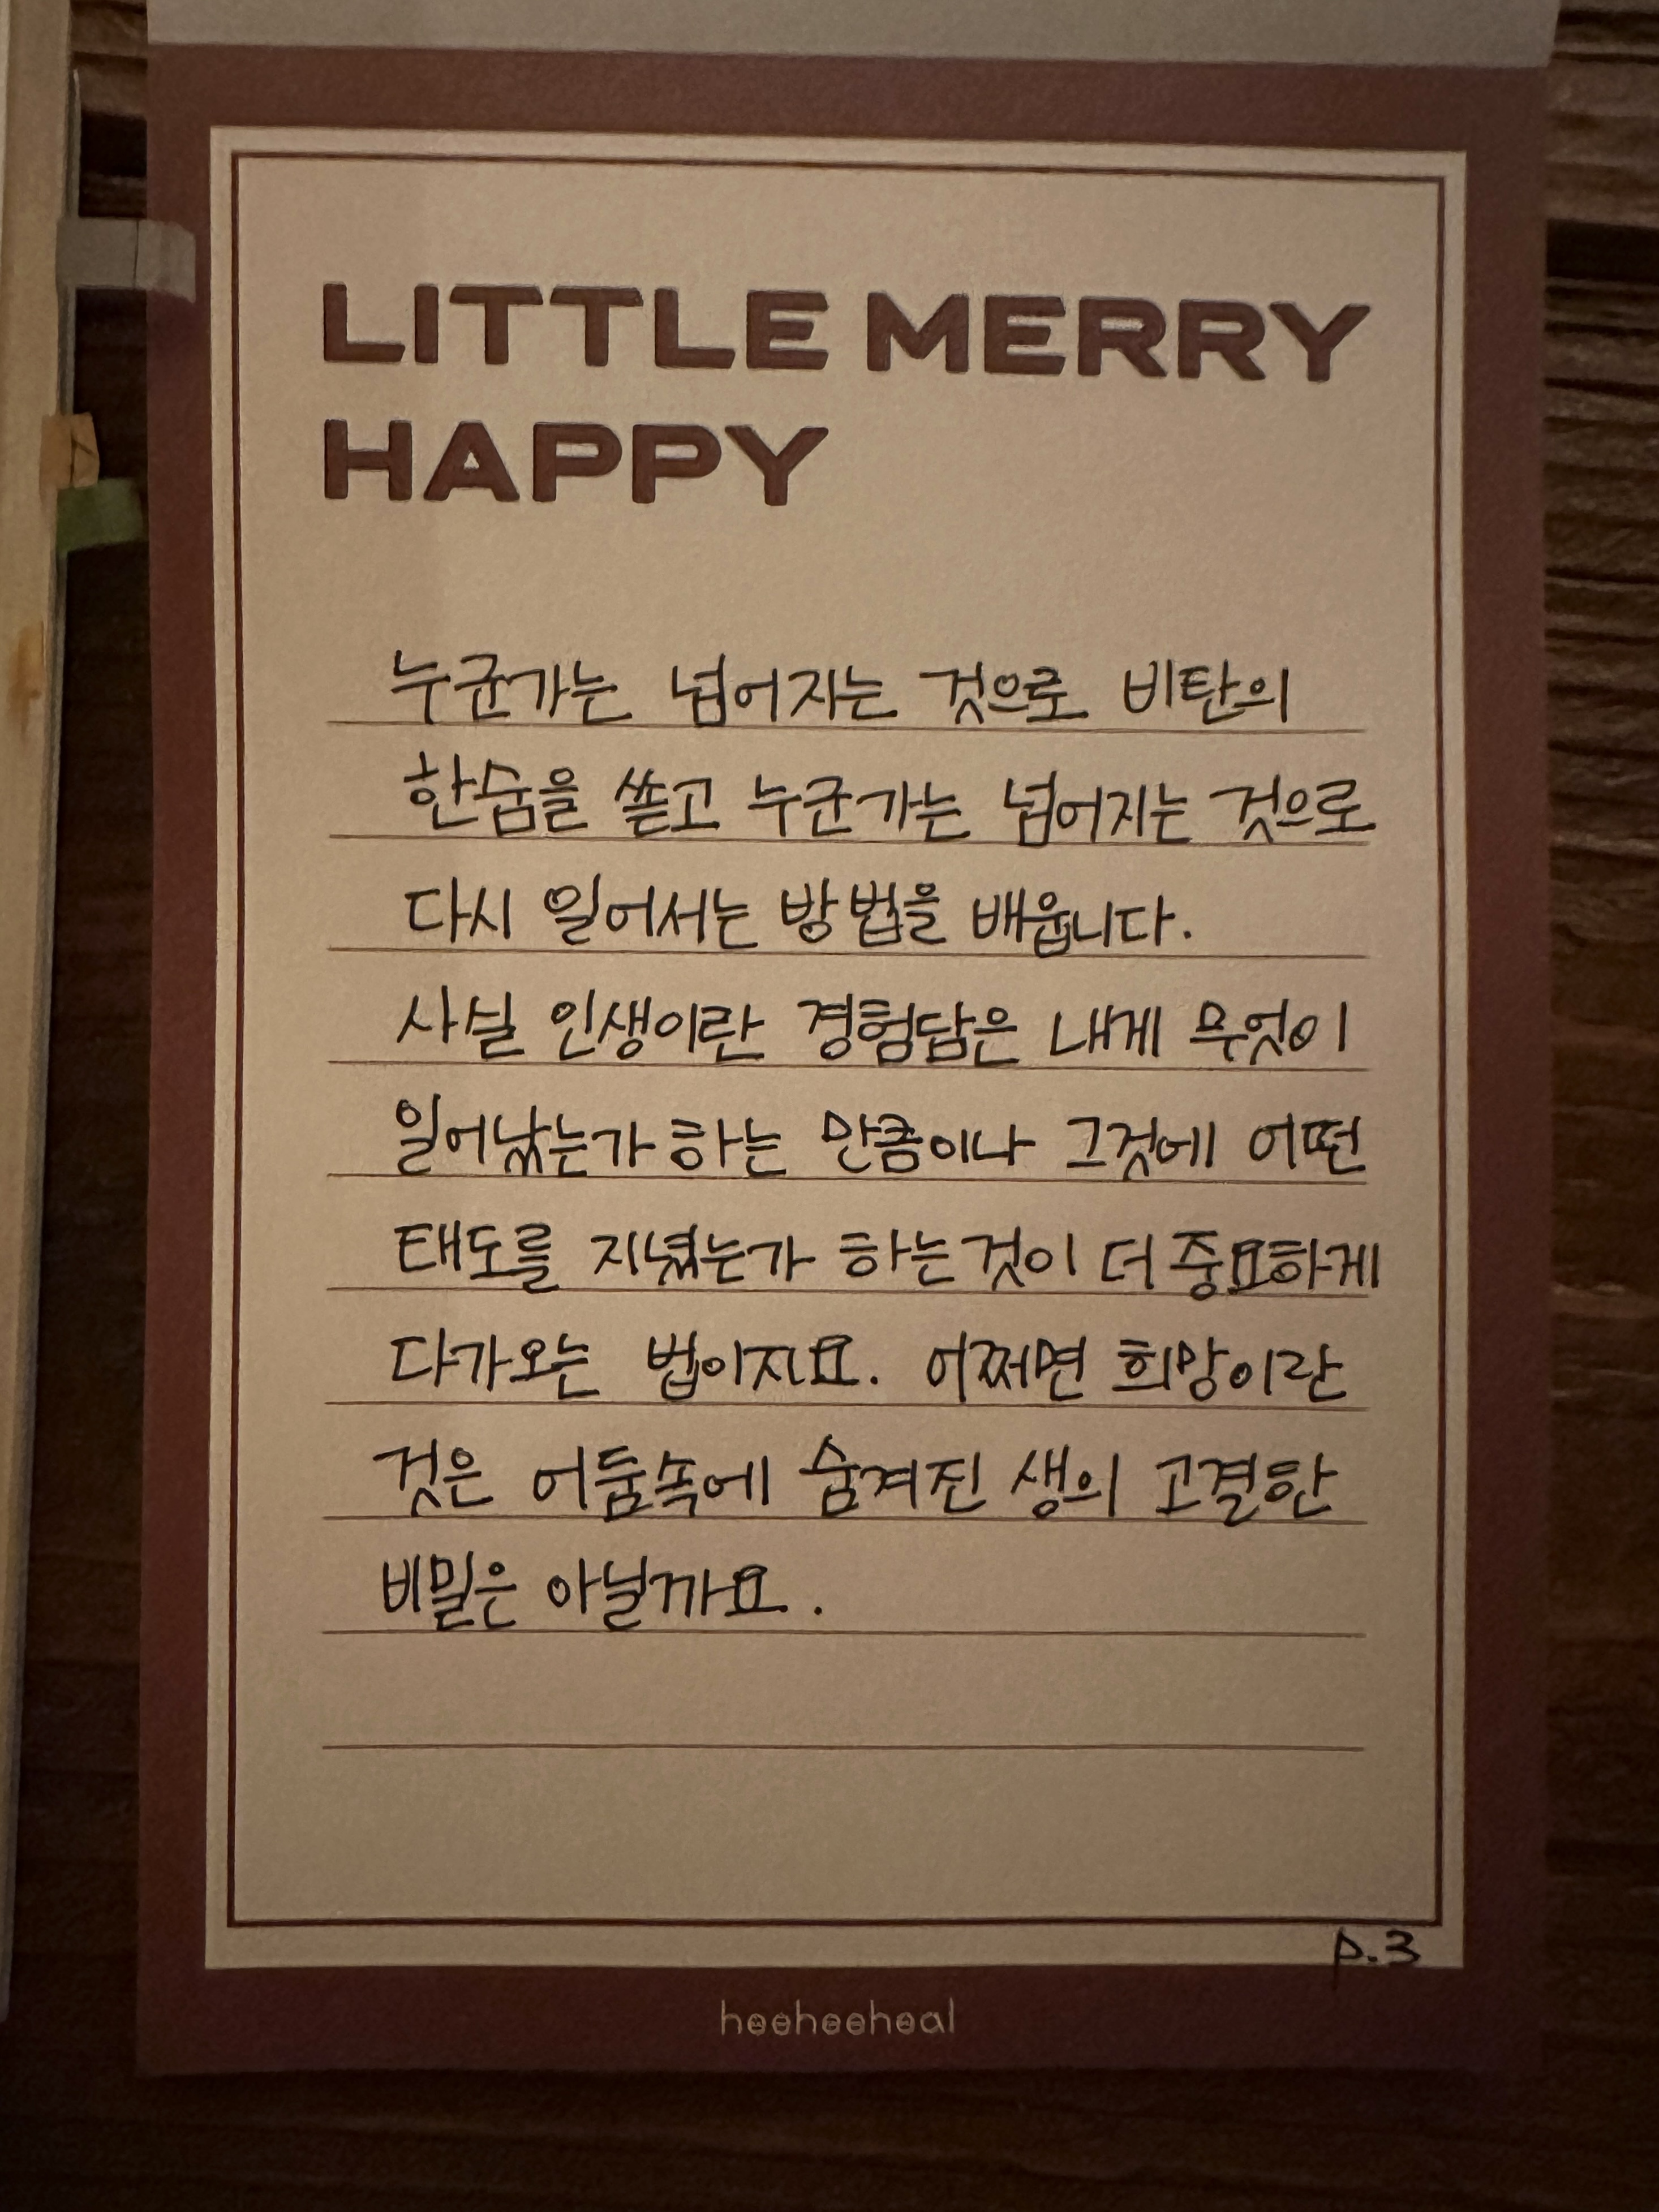 LITTLE MERRY
HAPPY
누군가는 넘어지는 것으로 비탄의
한숨을 쏟고 누군가는 넘어지는 것으로
다시 일어서는 방법을 배웁니다.
사실 인생이란 경험담은 내게 무엇이
일어났는가 하는 만큼이나 그것에 어떤
태도를 지녔는가 하는것이 더 중요하게
다가오는 법이지요. 어쩌면 희망이란
것은 어둠속에 숨겨진 생의 고결한
비밀은 아닐까요.
p.3
heeheeheal